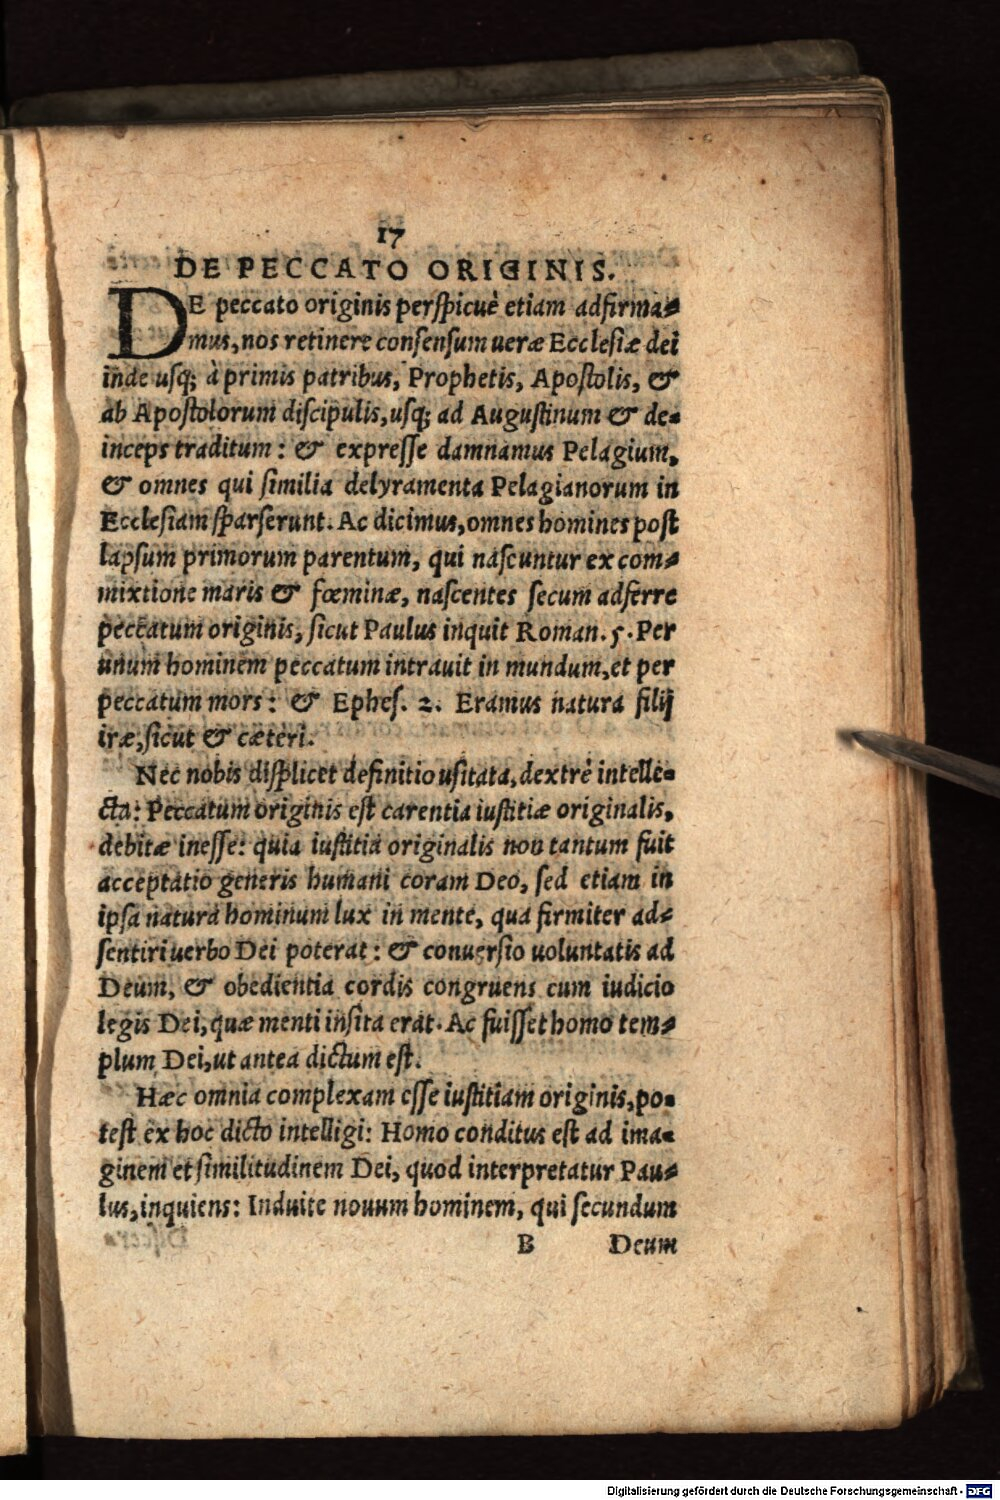 17
DE PECCATO ORIGINIS.
DE peccato originis perspicuè etiam adfirma-
mus, nos retinere consensum ueræ Ecclesiæ dei
inde usq; à primis patribus, Prophetis, Apostolis, &
ab Apostolorum discipulis, usq; ad Augustinum & de-
inceps traditum: & expresse damnamus Pelagium,
& omnes qui similia delyramenta Pelagianorum in
Ecclesiam sparserunt. Ac dicimus, omnes homines post
lapsum primorum parentum, qui nascuntur ex com-
mixtione maris & fœminæ, nascentes secum adferre
peccatum originis, sicut Paulus inquit Roman. 5. Per
unum hominem peccatum intrauit in mundum, et per
peccatum mors: & Ephes. 2. Eramus natura filij
iræ, sicut & cæteri.
Nec nobis displicet definitio usitata, dextrè intelle-
cta: Peccatum originis est carentia iustitiæ originalis,
debitæ inesse: quia iustitia originalis non tantum fuit
acceptatio generis humani coram Deo, sed etiam in
ipsa natura hominum lux in mente, qua firmiter ad-
sentiri uerbo Dei poterat: & conuersio uoluntatis ad
Deum, & obedientia cordis congruens cum iudicio
legis Dei, quæ menti insita erat. Ac fuisset homo tem-
plum Dei, ut antea dictum est.
Hæc omnia complexam esse iustitiam originis, po-
test ex hoc dicto intelligi: Homo conditus est ad ima-
ginem et similitudinem Dei, quod interpretatur Pau-
lus, inquiens: Induite nouum hominem, qui secundum
B Deum
Digitalisierung gefördert durch die Deutsche Forschungsgemeinschaft - DFG